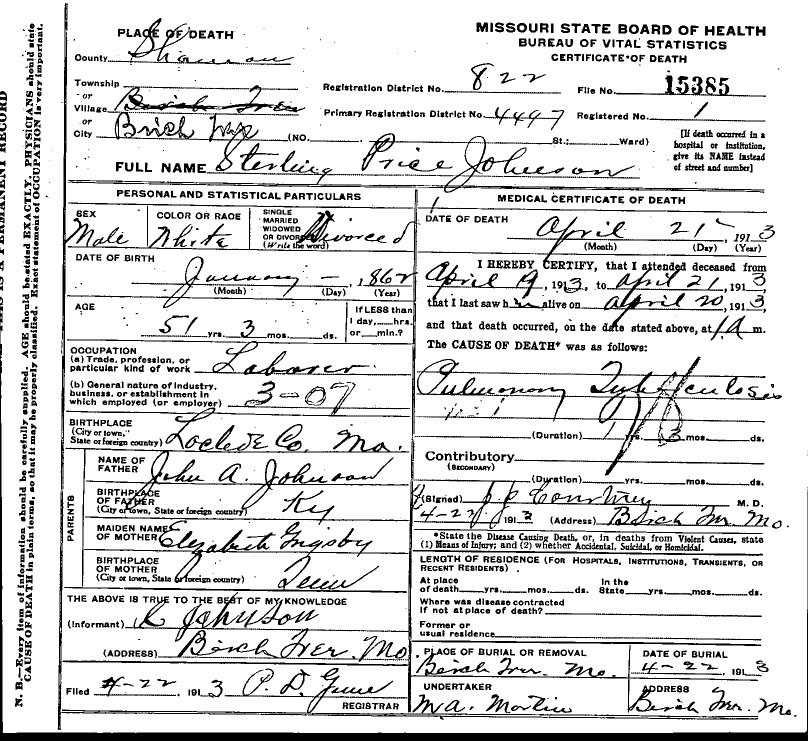 MISSOURI STATE BOARD OF HEALTH
BUREAU OF VITAL STATISTICS
CERTIFICATE OF DEATH
PLACE OF DEATH
County Shannon
Township
or
Village Birch Tree
or
City Birch Tree (NO. St.; Ward)
Registration District No. 822 File No. 15385
Primary Registration District No. 4497 Registered No. 1
[If death occurred in a hospital or institution, give its NAME instead of street and number]
FULL NAME Sterling Price Johnson
PERSONAL AND STATISTICAL PARTICULARS
SEX Male
COLOR OR RACE White
SINGLE MARRIED WIDOWED OR DIVORCED (Write the word) Divorced
DATE OF BIRTH January – 1862
(Month) (Day) (Year)
AGE 51 yrs. 3 mos. ds.
If LESS than 1 day, hrs. or min.?
OCCUPATION
(a) Trade, profession, or particular kind of work Laborer
(b) General nature of industry, business, or establishment in which employed (or employer) 3-07
BIRTHPLACE
(City or town, State or foreign country) Laclede Co. Mo.
PARENTS
NAME OF FATHER John A. Johnson
BIRTHPLACE OF FATHER (City or town, State or foreign country) Ky
MAIDEN NAME OF MOTHER Elizabeth Grigsby
BIRTHPLACE OF MOTHER (City or town, State or foreign country) Tenn
THE ABOVE IS TRUE TO THE BEST OF MY KNOWLEDGE
(Informant) Johnson
(ADDRESS) Birch Tree Mo
Filed 4-22, 1913 P. D. REGISTRAR
MEDICAL CERTIFICATE OF DEATH
DATE OF DEATH April 21, 1913
(Month) (Day) (Year)
I HEREBY CERTIFY, that I attended deceased from
April 19, 1913, to April 21, 1913
that I last saw him alive on April 20, 1913,
and that death occurred, on the date stated above, at 1 A m.
The CAUSE OF DEATH* was as follows:
Pulmonary Tuberculosis
(Duration) 1 yrs. 3 mos. ds.
Contributory
(SECONDARY)
(Duration) yrs. mos. ds.
(Signed) J J Courtney M. D.
4-22 1913 (Address) Birch Tree Mo.
*State the Disease Causing Death, or, in deaths from Violent Causes, state (1) Means of Injury; and (2) whether Accidental, Suicidal, or Homicidal.
LENGTH OF RESIDENCE (For Hospitals, Institutions, Transients, or Recent Residents)
At place of death yrs. mos. ds. In the State yrs. mos. ds.
Where was disease contracted if not at place of death?
Former or usual residence
PLACE OF BURIAL OR REMOVAL Birch Tree Mo.
DATE OF BURIAL 4-22 1913
UNDERTAKER M. A. Martin
ADDRESS Birch Tree Mo.
THIS IS A PERMANENT RECORD
N. B.—Every item of information should be carefully supplied. AGE should be stated EXACTLY. PHYSICIANS should state CAUSE OF DEATH in plain terms, so that it may be properly classified. Exact statement of OCCUPATION is very important.